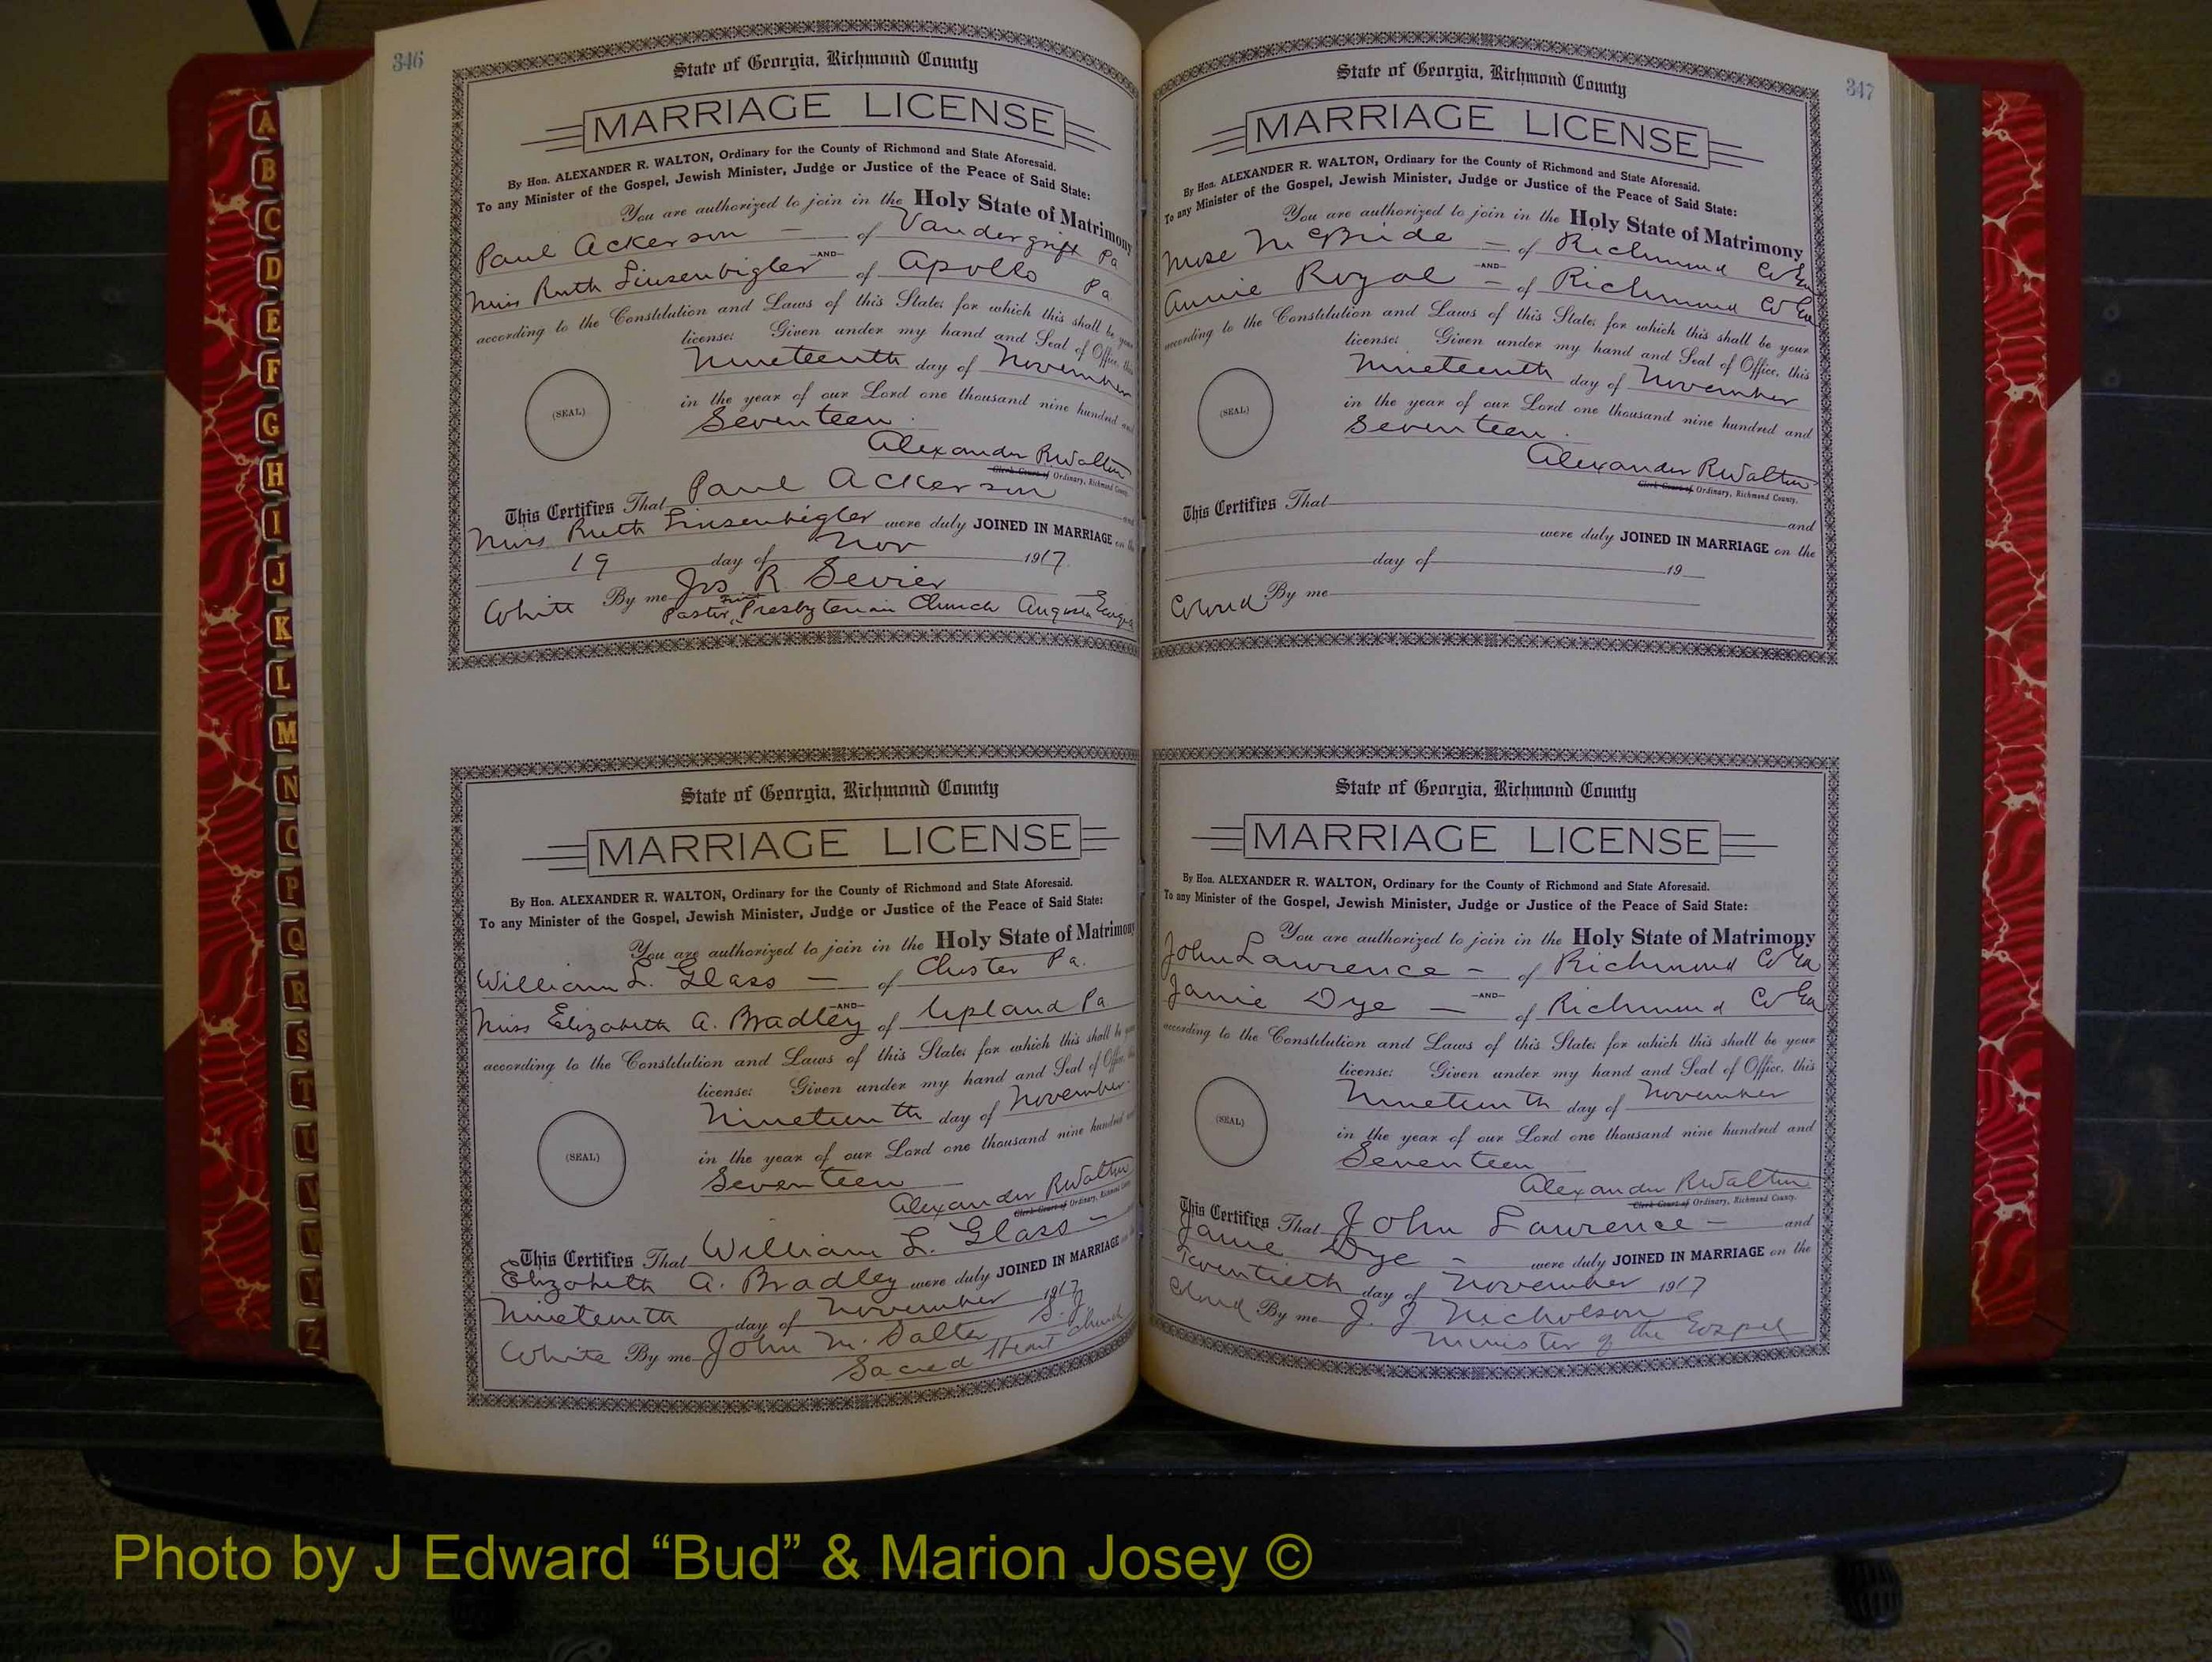 346
State of Georgia, Richmond County
MARRIAGE LICENSE
By Hon. ALEXANDER R. WALTON, Ordinary for the County of Richmond and State Aforesaid.
To any Minister of the Gospel, Jewish Minister, Judge or Justice of the Peace of Said State:
You are authorized to join in the Holy State of Matrimony
Paul Ackerson — of Vandergrift Pa
—AND—
Miss Ruth Linsenbigler of Apollo Pa
according to the Constitution and Laws of this State; for which this shall be your
license: Given under my hand and Seal of Office, this
Nineteenth day of November
in the year of our Lord one thousand nine hundred and
Seventeen.
(SEAL)
Alexander R Walton
Clerk Court of Ordinary, Richmond County.
This Certifies That Paul Ackerson and
Miss Ruth Linsenbigler were duly JOINED IN MARRIAGE on the
19 day of Nov 1917.
White By me Jos R. Sevier
Pastor, First Presbyterian Church Augusta Georgia
State of Georgia, Richmond County
MARRIAGE LICENSE
By Hon. ALEXANDER R. WALTON, Ordinary for the County of Richmond and State Aforesaid.
To any Minister of the Gospel, Jewish Minister, Judge or Justice of the Peace of Said State:
You are authorized to join in the Holy State of Matrimony
William L. Glass — of Chester Pa.
—AND—
Miss Elizabeth A. Bradley of Upland Pa
according to the Constitution and Laws of this State; for which this shall be your
license: Given under my hand and Seal of Office, this
Nineteenth day of November
in the year of our Lord one thousand nine hundred and
Seventeen
(SEAL)
Alexander R Walton
Clerk Court of Ordinary, Richmond County.
This Certifies That William L. Glass —
Elizabeth A. Bradley were duly JOINED IN MARRIAGE on the
Nineteenth day of November 1917
White By me John M. Salter S.J.
Sacred Heart Church
347
State of Georgia, Richmond County
MARRIAGE LICENSE
By Hon. ALEXANDER R. WALTON, Ordinary for the County of Richmond and State Aforesaid.
To any Minister of the Gospel, Jewish Minister, Judge or Justice of the Peace of Said State:
You are authorized to join in the Holy State of Matrimony
Mose McBride — of Richmond Co Ga
—AND—
Annie Royal — of Richmond Co Ga
according to the Constitution and Laws of this State; for which this shall be your
license: Given under my hand and Seal of Office, this
Nineteenth day of November
in the year of our Lord one thousand nine hundred and
Seventeen.
(SEAL)
Alexander R Walton
Clerk Court of Ordinary, Richmond County.
This Certifies That
and
were duly JOINED IN MARRIAGE on the
day of 19
Colored By me
State of Georgia, Richmond County
MARRIAGE LICENSE
By Hon. ALEXANDER R. WALTON, Ordinary for the County of Richmond and State Aforesaid.
To any Minister of the Gospel, Jewish Minister, Judge or Justice of the Peace of Said State:
You are authorized to join in the Holy State of Matrimony
John Lawrence — of Richmond Co Ga
—AND—
Janie Dye — of Richmond Co Ga
according to the Constitution and Laws of this State; for which this shall be your
license: Given under my hand and Seal of Office, this
Nineteenth day of November
in the year of our Lord one thousand nine hundred and
Seventeen
(SEAL)
Alexander R Walton
Clerk Court of Ordinary, Richmond County.
This Certifies That John Lawrence — and
Janie Dye — were duly JOINED IN MARRIAGE on the
Twentieth day of November 1917
Colored By me J. J. Nicholson
Minister of the Gospel
A
B
C
D
E
F
G
H
I
J
K
L
M
N
O
P
Q
R
S
T
U
V
W
X
Y
Z
Photo by J Edward “Bud” & Marion Josey ©